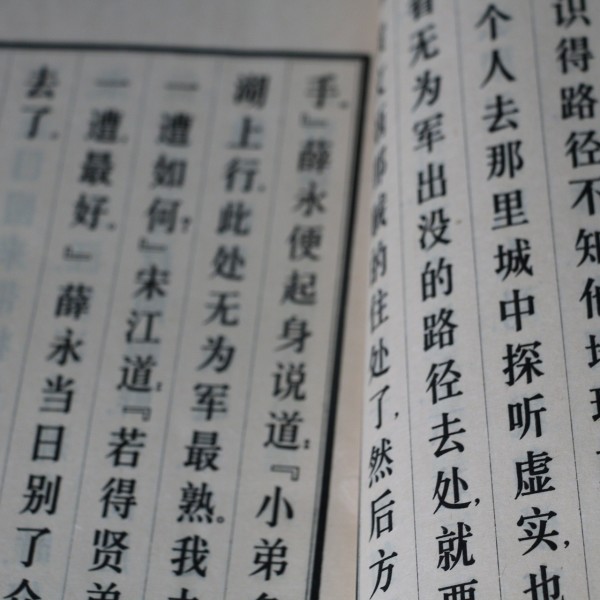 识得路径不知
个人去那里城中探听虚实，也
无为军出没的路径去处，就要
的住处了，然后方
手。』薛永便起身说道：『小弟
湖上行。此处无为军最熟。我
一遭如何？』宋江道：『若得贤弟
一遭最好。』薛永当日别了
去了。